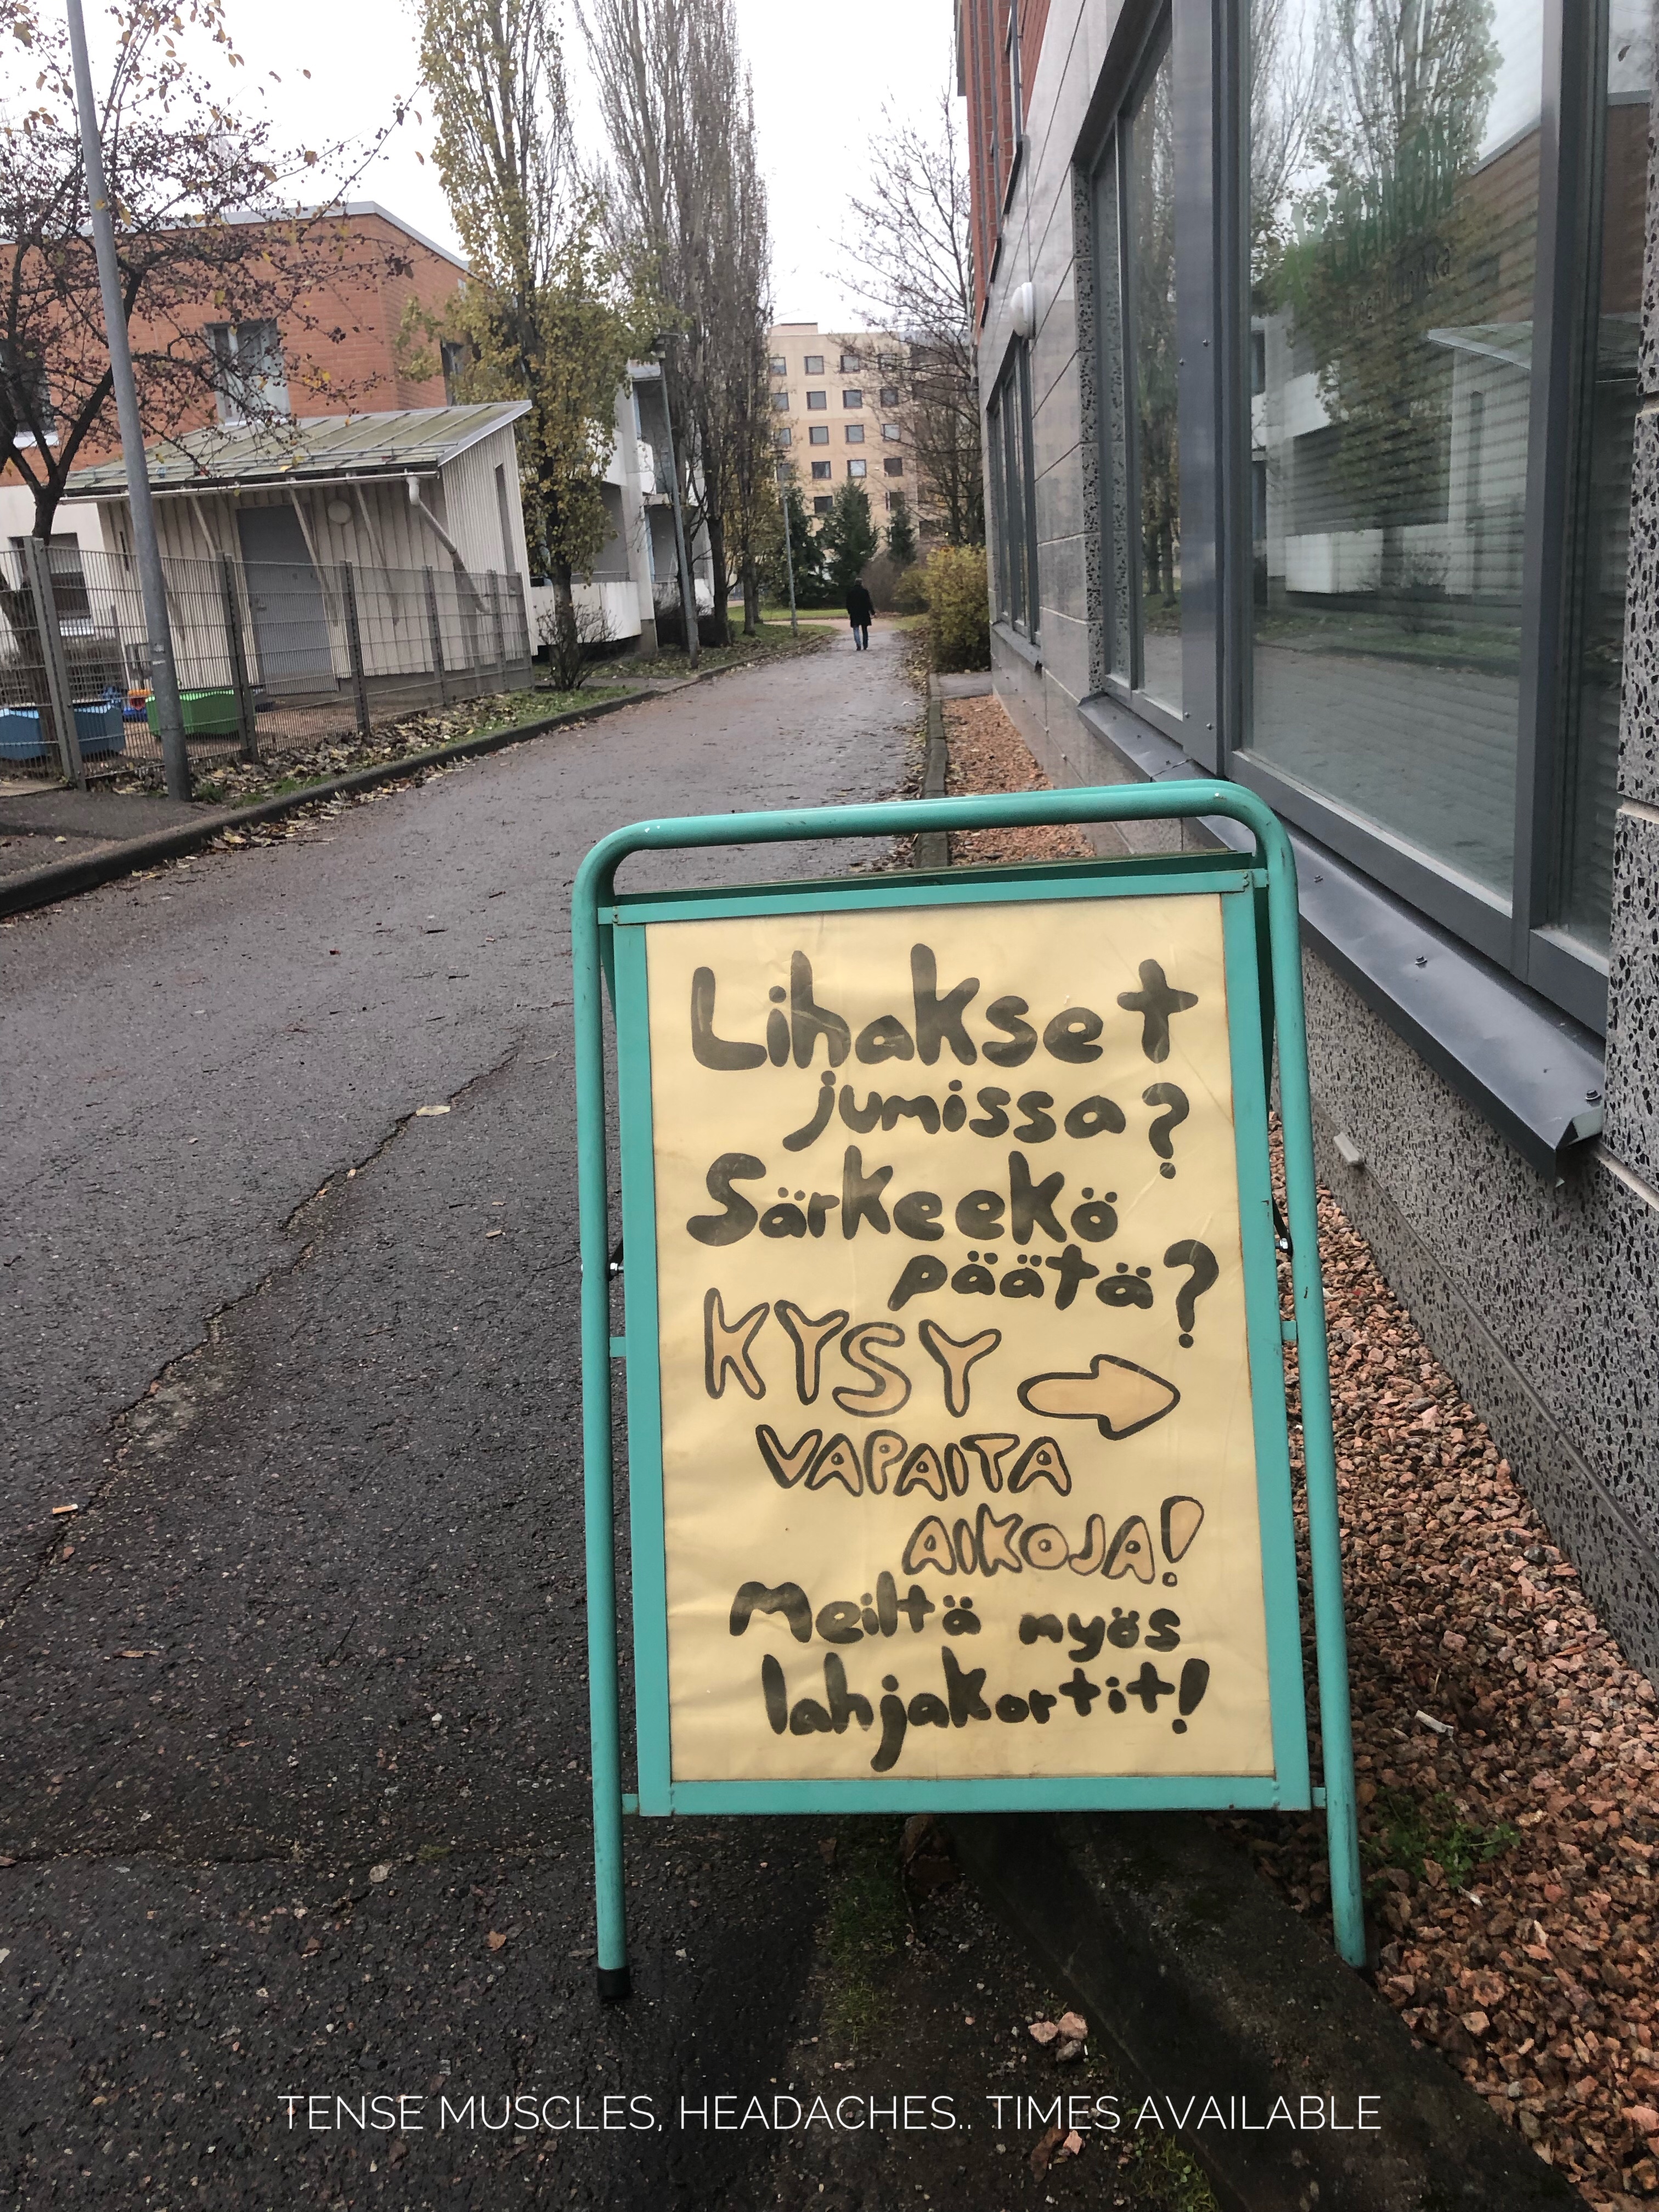 Lihakset
jumissa?
Särkeekö
päätä?
KYSY
VAPAITA
AIKOJA!
Meiltä myös
lahjakortit!
TENSE MUSCLES, HEADACHES.. TIMES AVAILABLE